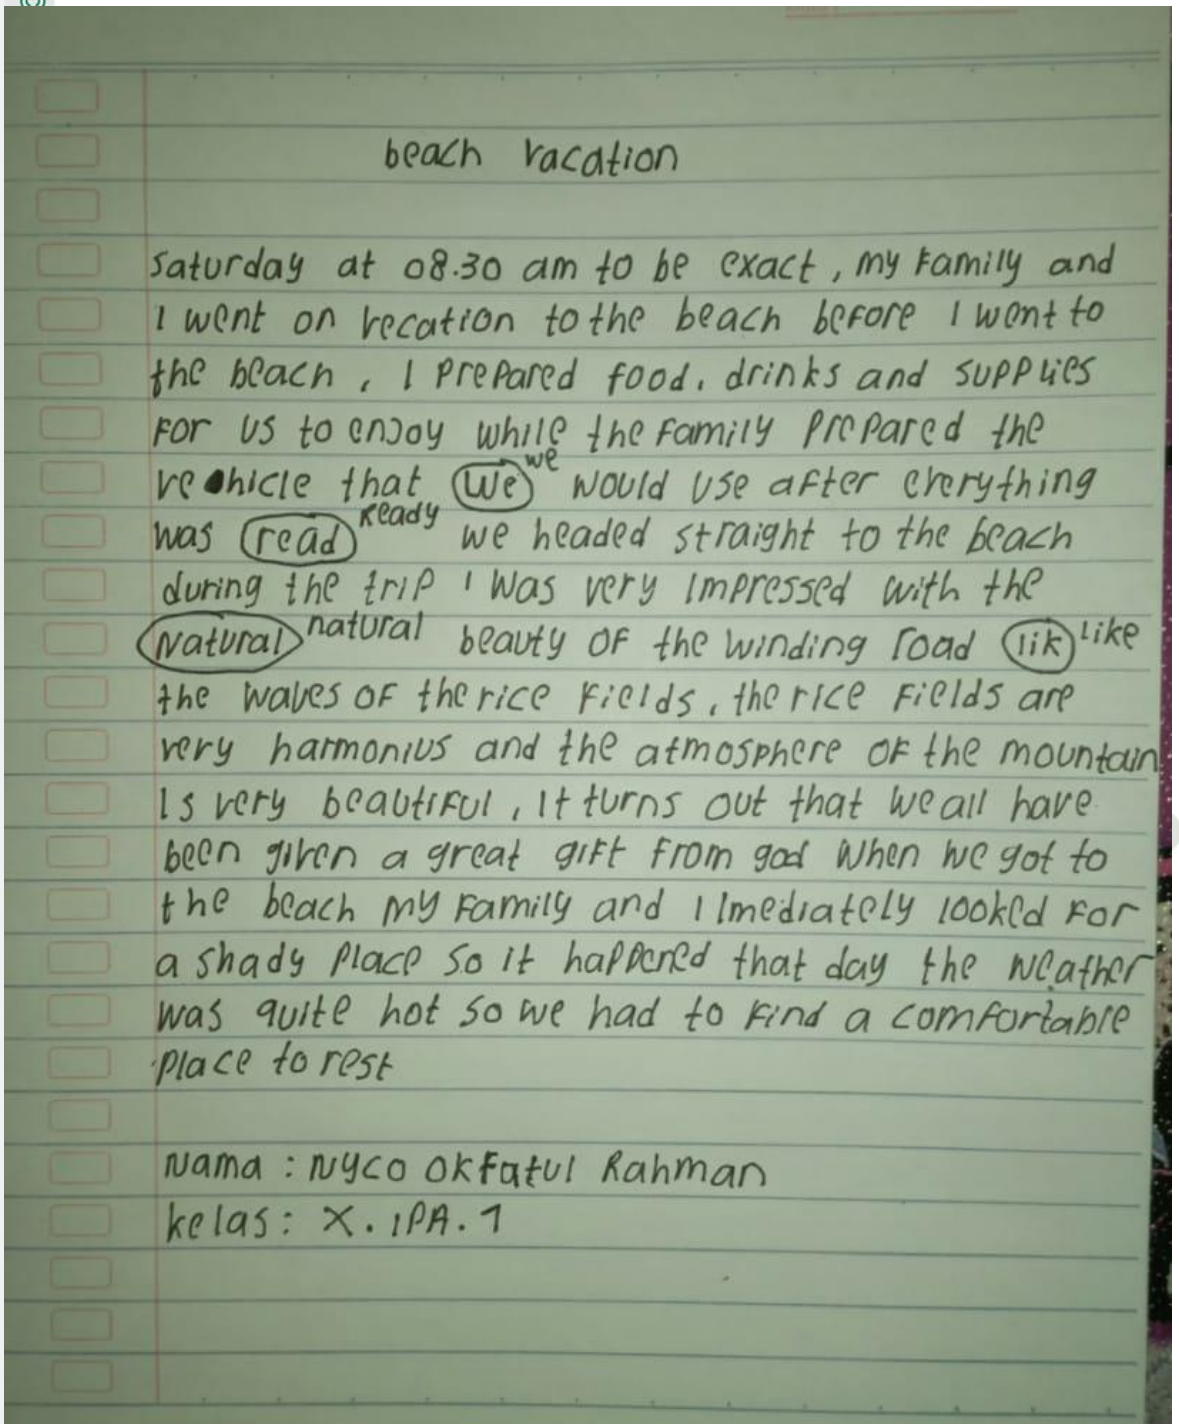 beach vacation
saturday at 08.30 am to be exact, my family and
I went on vecation to the beach before I went to
the beach, I prepared food, drinks and supplies
for us to enjoy while the family prepared the
vehicle that (we) we would use after everything
was (read) Ready we headed straight to the beach
during the trip I was very impressed with the
(natural) natural beauty of the winding road (lik) like
the waves of the rice fields, the rice fields are
very harmonius and the atmosphere of the mountain
is very beautiful, it turns out that we all have
been given a great gift from god when we got to
the beach my family and I Imediately looked for
a shady place so it happened that day the weather
was quite hot so we had to find a comfortable
place to rest
Nama : Nyco okfatul Rahman
kelas : X. IPA. 1